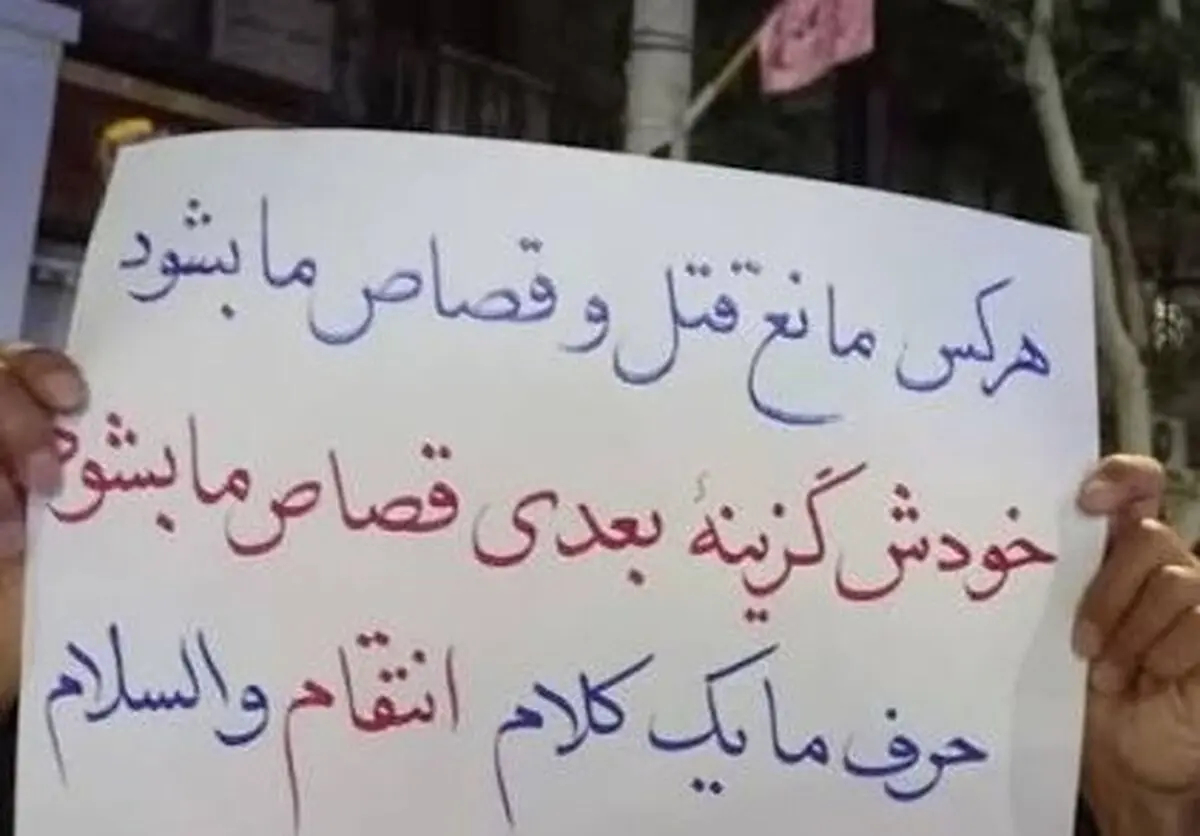 هرکس مانع قتل و قصاص ما بشود
خودش گزینهٔ بعدی قصاص ما بشود
حرف ما یک کلام انتقام والسلام